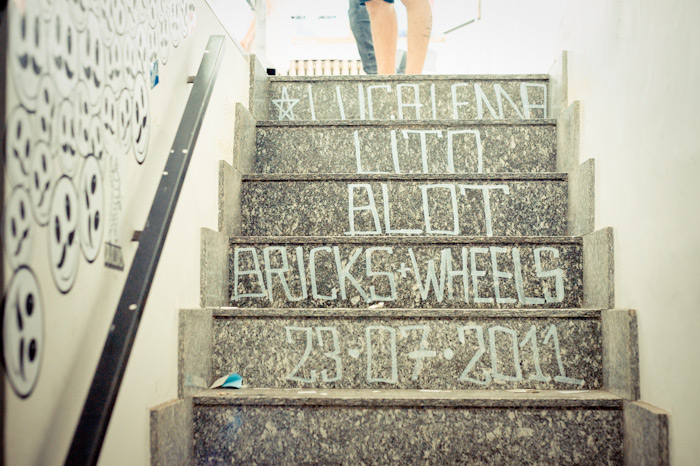 LUCA LENNA
LITO
BLOT
BRICKS+WHEELS
23·07·2011